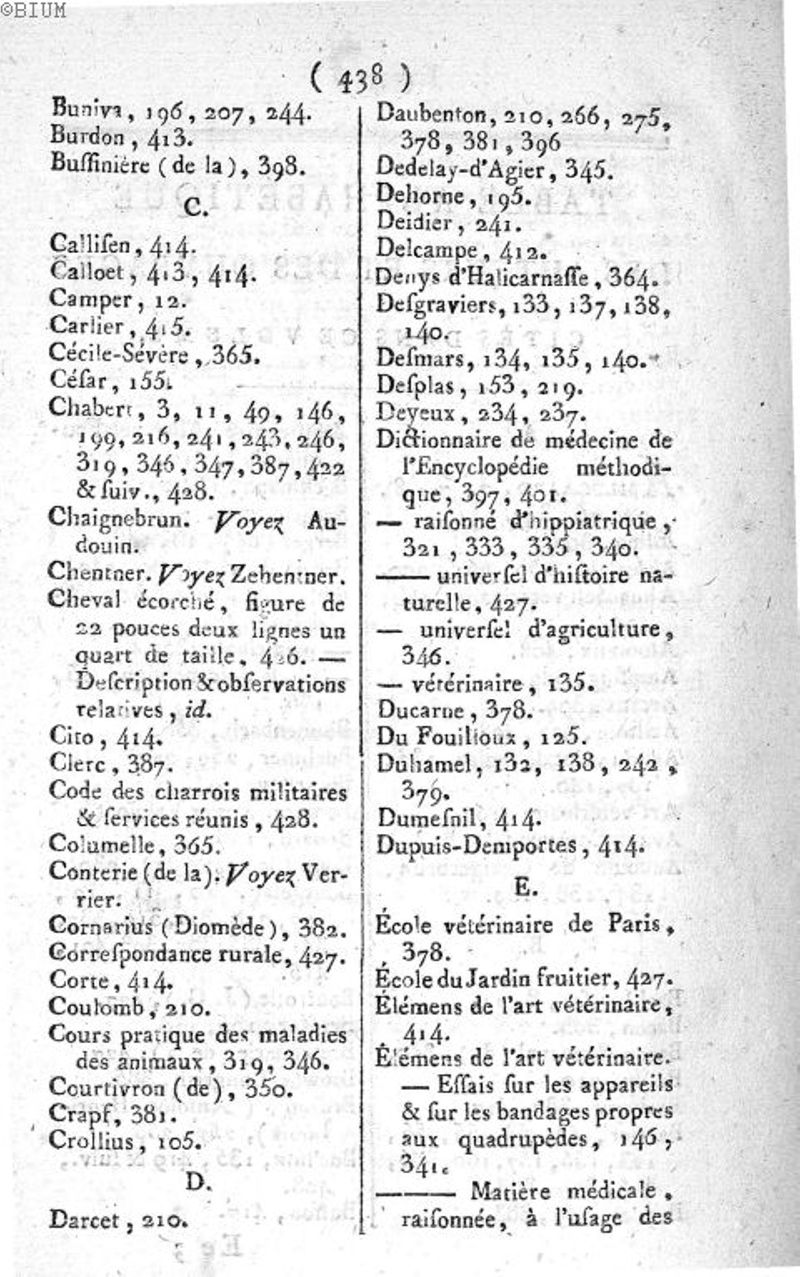 ©BIUM
( 438 )
Buniva, 196, 207, 244.
Burdon, 413.
Buſſinière (de la), 398.
C.
Calliſen, 414.
Calloet, 413, 414.
Camper, 12.
Carlier, 415.
Cécile-Sévère, 365.
Céſar, 155.
Chabert, 3, 11, 49, 146,
199, 216, 241, 243, 246,
319, 346, 347, 387, 422
& ſuiv., 428.
Chaignebrun. Voyez Au-
douin.
Chentner. Voyez Zehentner.
Cheval écorché, figure de
22 pouces deux lignes un
quart de taille, 426. —
Deſcription & obſervations
relatives, id.
Cito, 414.
Clerc, 387.
Code des charrois militaires
& ſervices réunis, 428.
Columelle, 365.
Conterie (de la). Voyez Ver-
rier.
Cornarius (Diomède), 382.
Correſpondance rurale, 427.
Corte, 414.
Coulomb, 210.
Cours pratique des maladies
des animaux, 319, 346.
Courtivron (de), 350.
Crapf, 381.
Crollius, 105.
D.
Darcet, 210.
Daubenton, 210, 266, 275,
378, 381, 396
Dedelay-d'Agier, 345.
Dehorne, 195.
Deidier, 241.
Delcampe, 412.
Denys d'Halicarnaſſe, 364.
Deſgraviers, 133, 137, 138,
140.
Deſmars, 134, 135, 140.
Deſplas, 153, 219.
Deyeux, 234, 237.
Dictionnaire de médecine de
l'Encyclopédie méthodi-
que, 397, 401.
— raiſonné d'hippiatrique,
321, 333, 335, 340.
—— univerſel d'hiſtoire na-
turelle, 427.
— univerſel d'agriculture,
346.
— vétérinaire, 135.
Ducarne, 378.
Du Fouilloux, 125.
Duhamel, 132, 138, 242,
379.
Dumeſnil, 414.
Dupuis-Demportes, 414.
E.
École vétérinaire de Paris,
378.
École du Jardin fruitier, 427.
Élémens de l'art vétérinaire,
414.
Élémens de l'art vétérinaire.
— Eſſais ſur les appareils
& ſur les bandages propres
aux quadrupèdes, 146,
341.
——— Matière médicale,
raiſonnée, à l'uſage des